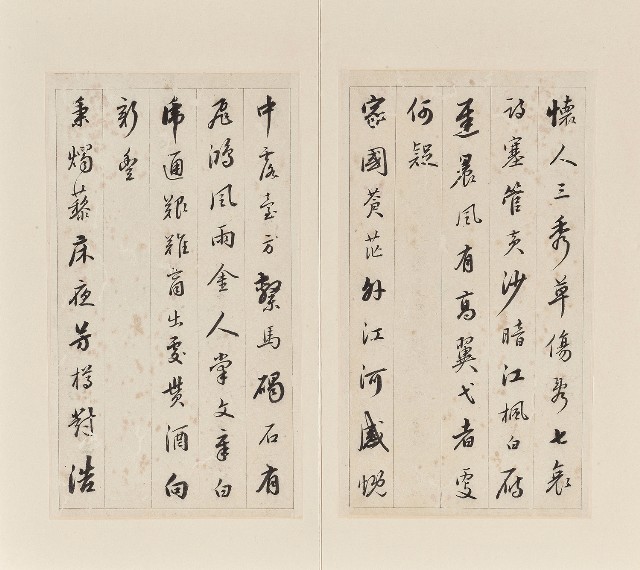 懷人三秀草傷彩七哀
詩塞管黃沙暗江楓白雁
遲晨風有高翼弋者更
何疑
家國蒼茫外江河感慨
中露臺方繫馬碣石有
飛鴻風雨金人掌文章白
虎通艱難前出塞貰酒向
新豐
秉燭藜床夜芳樽對浩